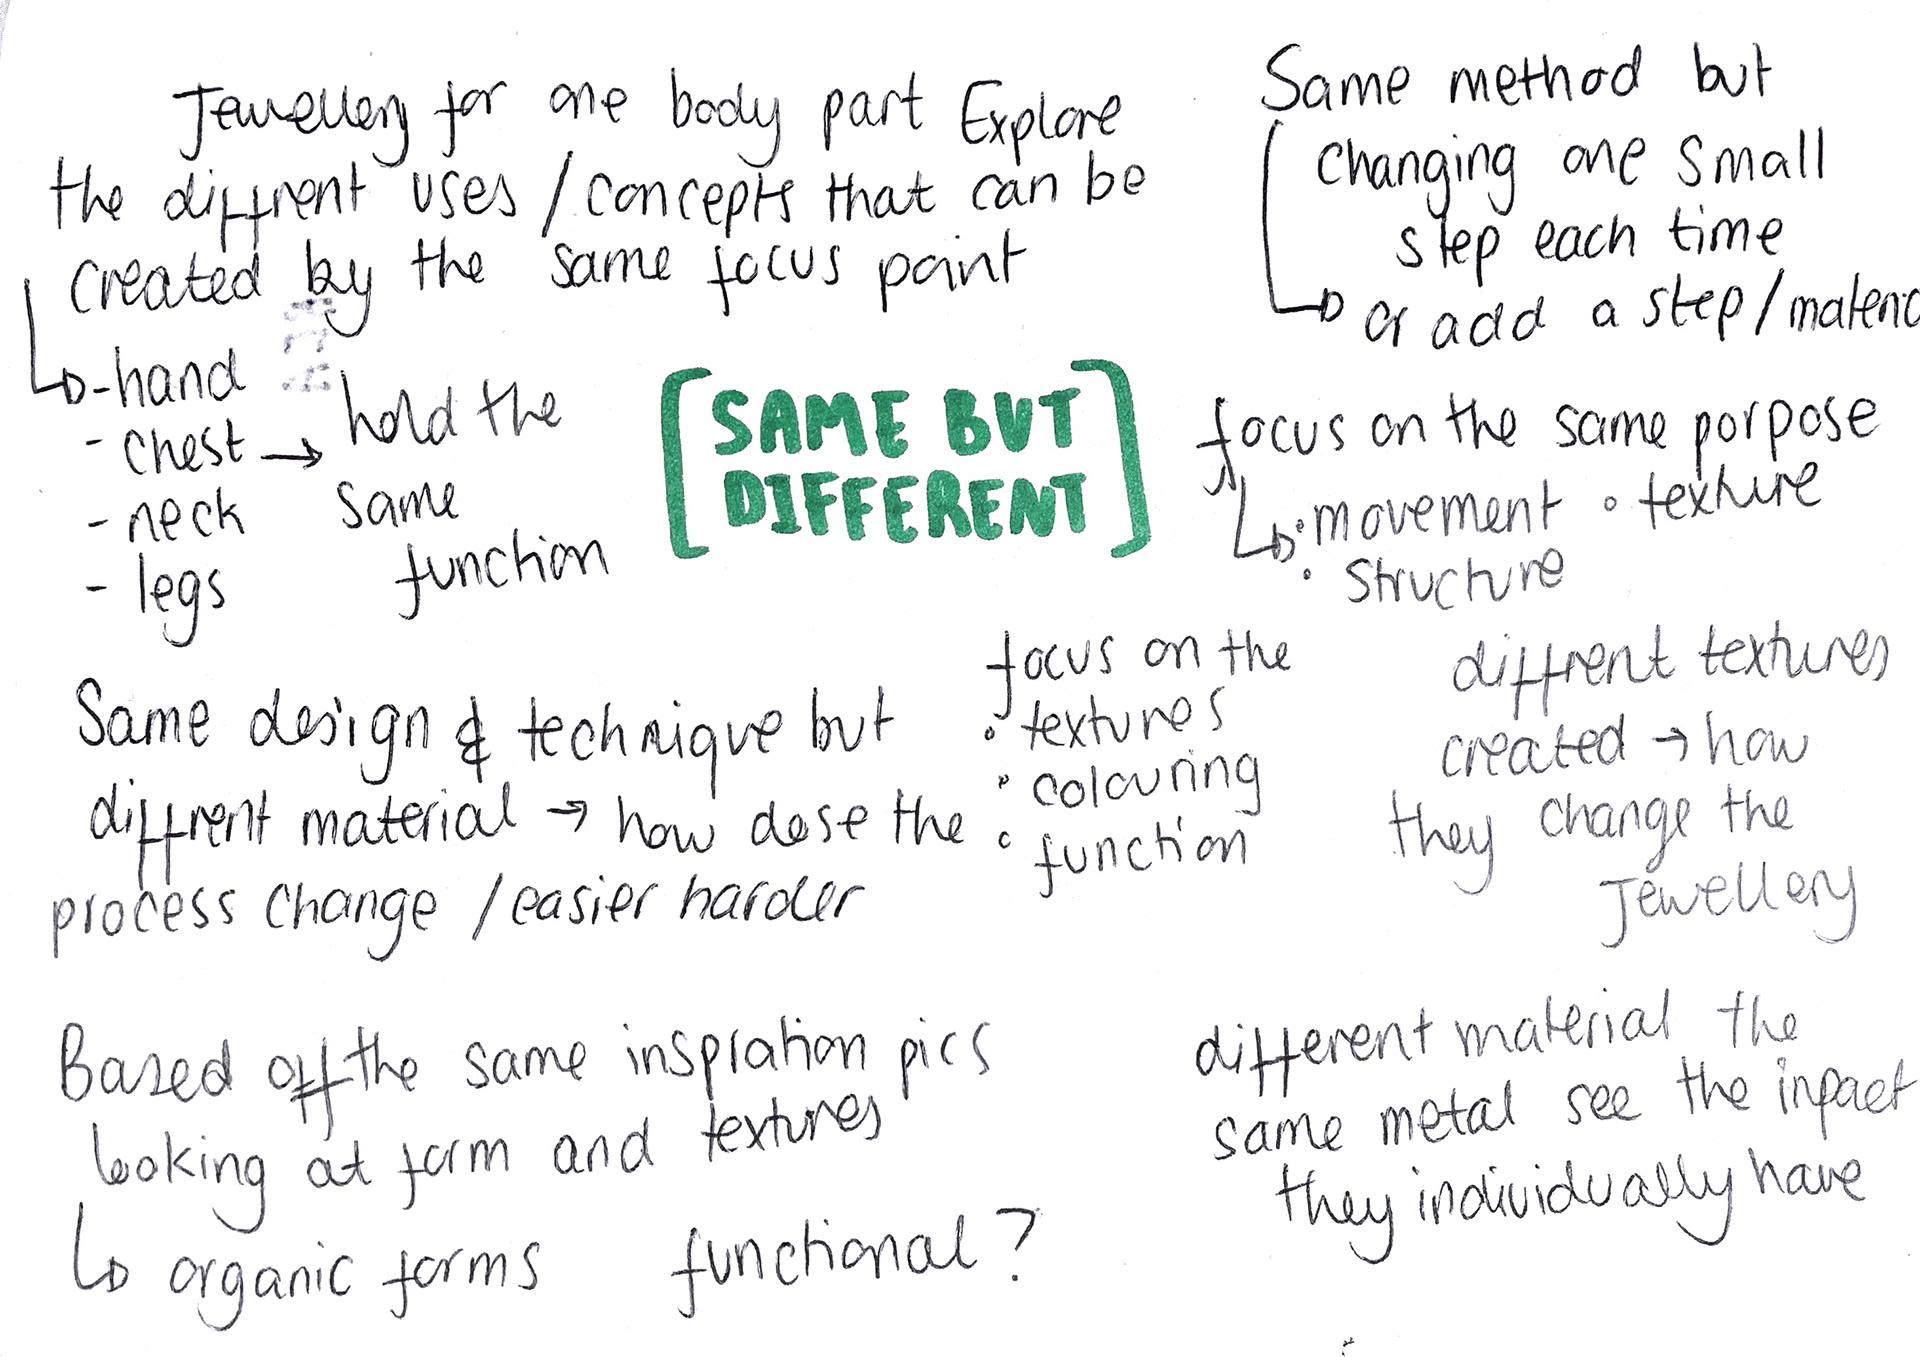 Jewellery for one body part Explore
the diffrent uses / concepts that can be
created by the same focus point
- hand
- chest → hold the
- neck same
- legs function
Same method but
changing one small
step each time
or add a step / materia
[SAME BUT
DIFFERENT]
focus on the same porpose
• movement • texture
• structure
Same design & technique but
diffrent material → how dose the
process change / easier harder
focus on the
• textures
• colouring
• function
diffrent textures
created → how
they change the
Jewellery
Based off the same inspiration pics
looking at form and textures
organic forms functional?
different material the
same metal see the inpact
they individually have